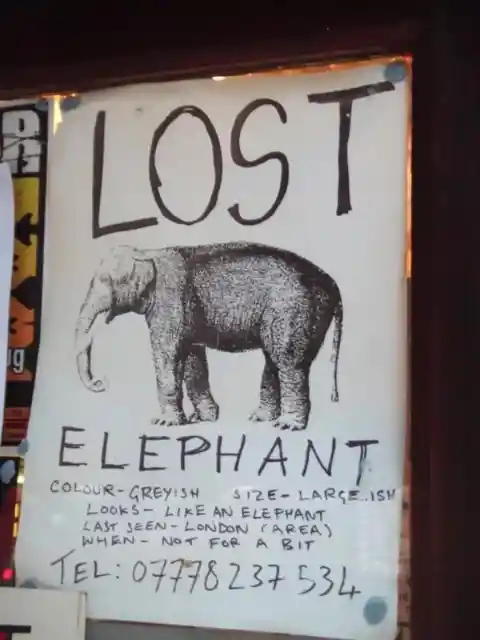 LOST
ELEPHANT
COLOUR- GREYISH SIZE- LARGE..ISH
LOOKS- LIKE AN ELEPHANT
LAST SEEN- LONDON (AREA)
WHEN- NOT FOR A BIT
TEL: 07778 237 534